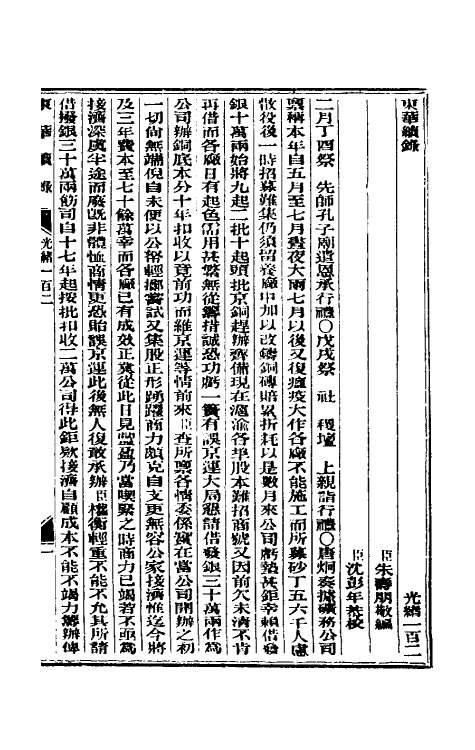 東華續錄
光緒一百二
臣朱壽朋敬編
臣沈彭年恭校
二月丁酉祭　先師孔子廟遣恩承行禮○戊戌祭　社　稷壇　上親詣行禮○唐炯奏據礦務公司
稟稱本年自五月至七月晝夜大雨七月以後又復瘟疫大作各廠不能施工而所募砂丁五六千人慮
散役後一時招募難集仍須留養廠中加以改鑄銅磚賠累折耗以是數月來公司虧墊甚鉅幸賴借發
銀十萬兩始將九起二批十起頭批京銅趕辦齊備現在滬渝各埠股本難招商號又因前欠未清不肯
再借而各廠日有起色需用甚繁無從籌措誠恐功虧一簣有誤京運大局懇請借發銀三十萬兩作為
公司辦銅底本分十年扣收以竟前功而維京運等情前來臣查所稟各情委係實在當公司開辦之初
一切尚無端倪自未便以公帑輕擲嘗試又集股正形踴躍商力頗克自支更無容公家接濟惟迄今將
及三年費本至七十餘萬幸而各廠已有成效正冀從此日見豐盈乃當喫緊之時商力已竭若不亟為
接濟深虞半途而廢既非體恤商情更恐貽誤京運此後無人復敢承辦臣權衡輕重不能不允其所請
借撥銀三十萬兩飭司自十七年起按批扣收二萬公司得此鉅款接濟自顧成本不能不竭力籌辦俾
東華續錄
光緒一百二
一